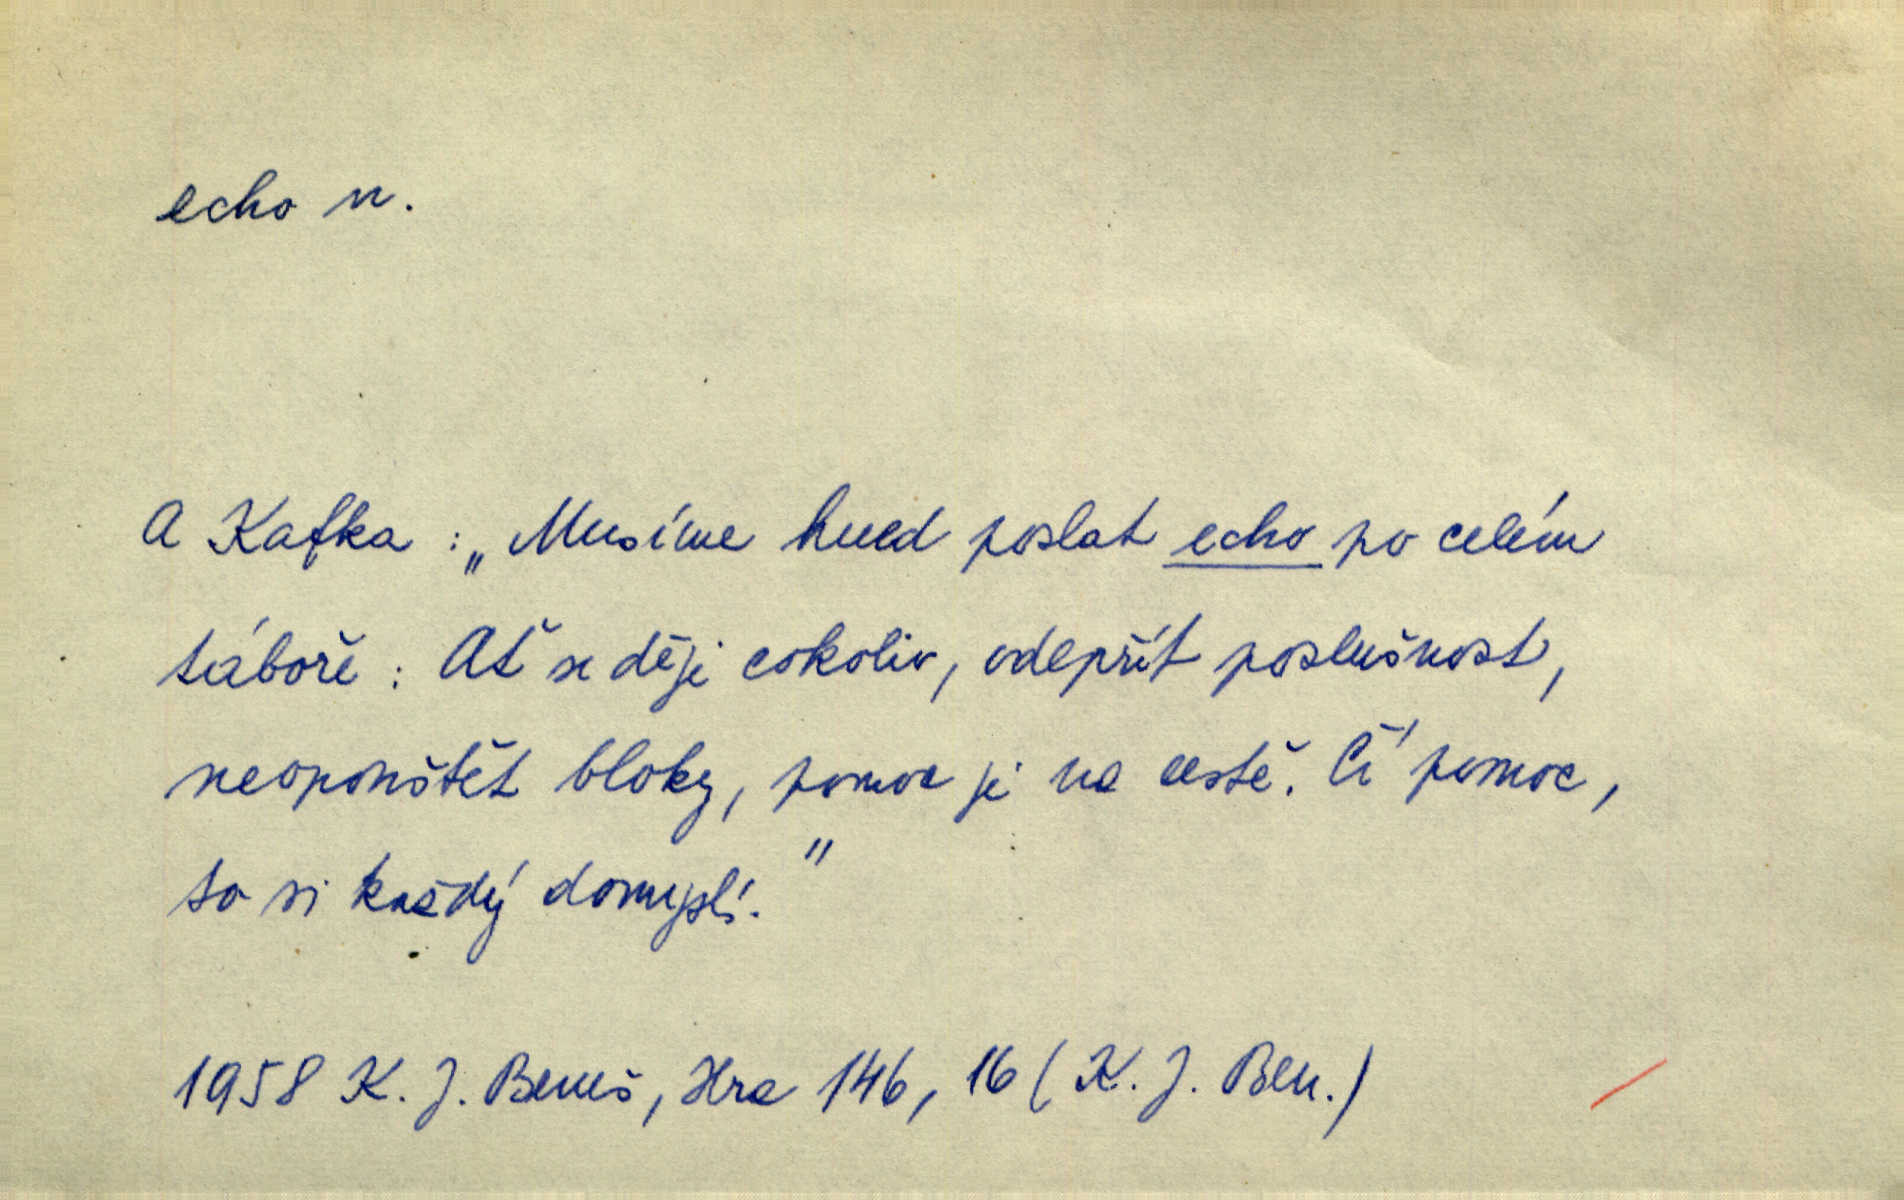 echo n.
A Kafka : „Musíme hned poslat echo po celém
táboře : Ať se děje cokoliv, odepřít poslušnost,
neopouštět bloky, pomoc je na cestě. Čí pomoc,
to si každý domyslí."
1958 K. J. Beneš, Hra 146, 16 (K. J. Ben.)